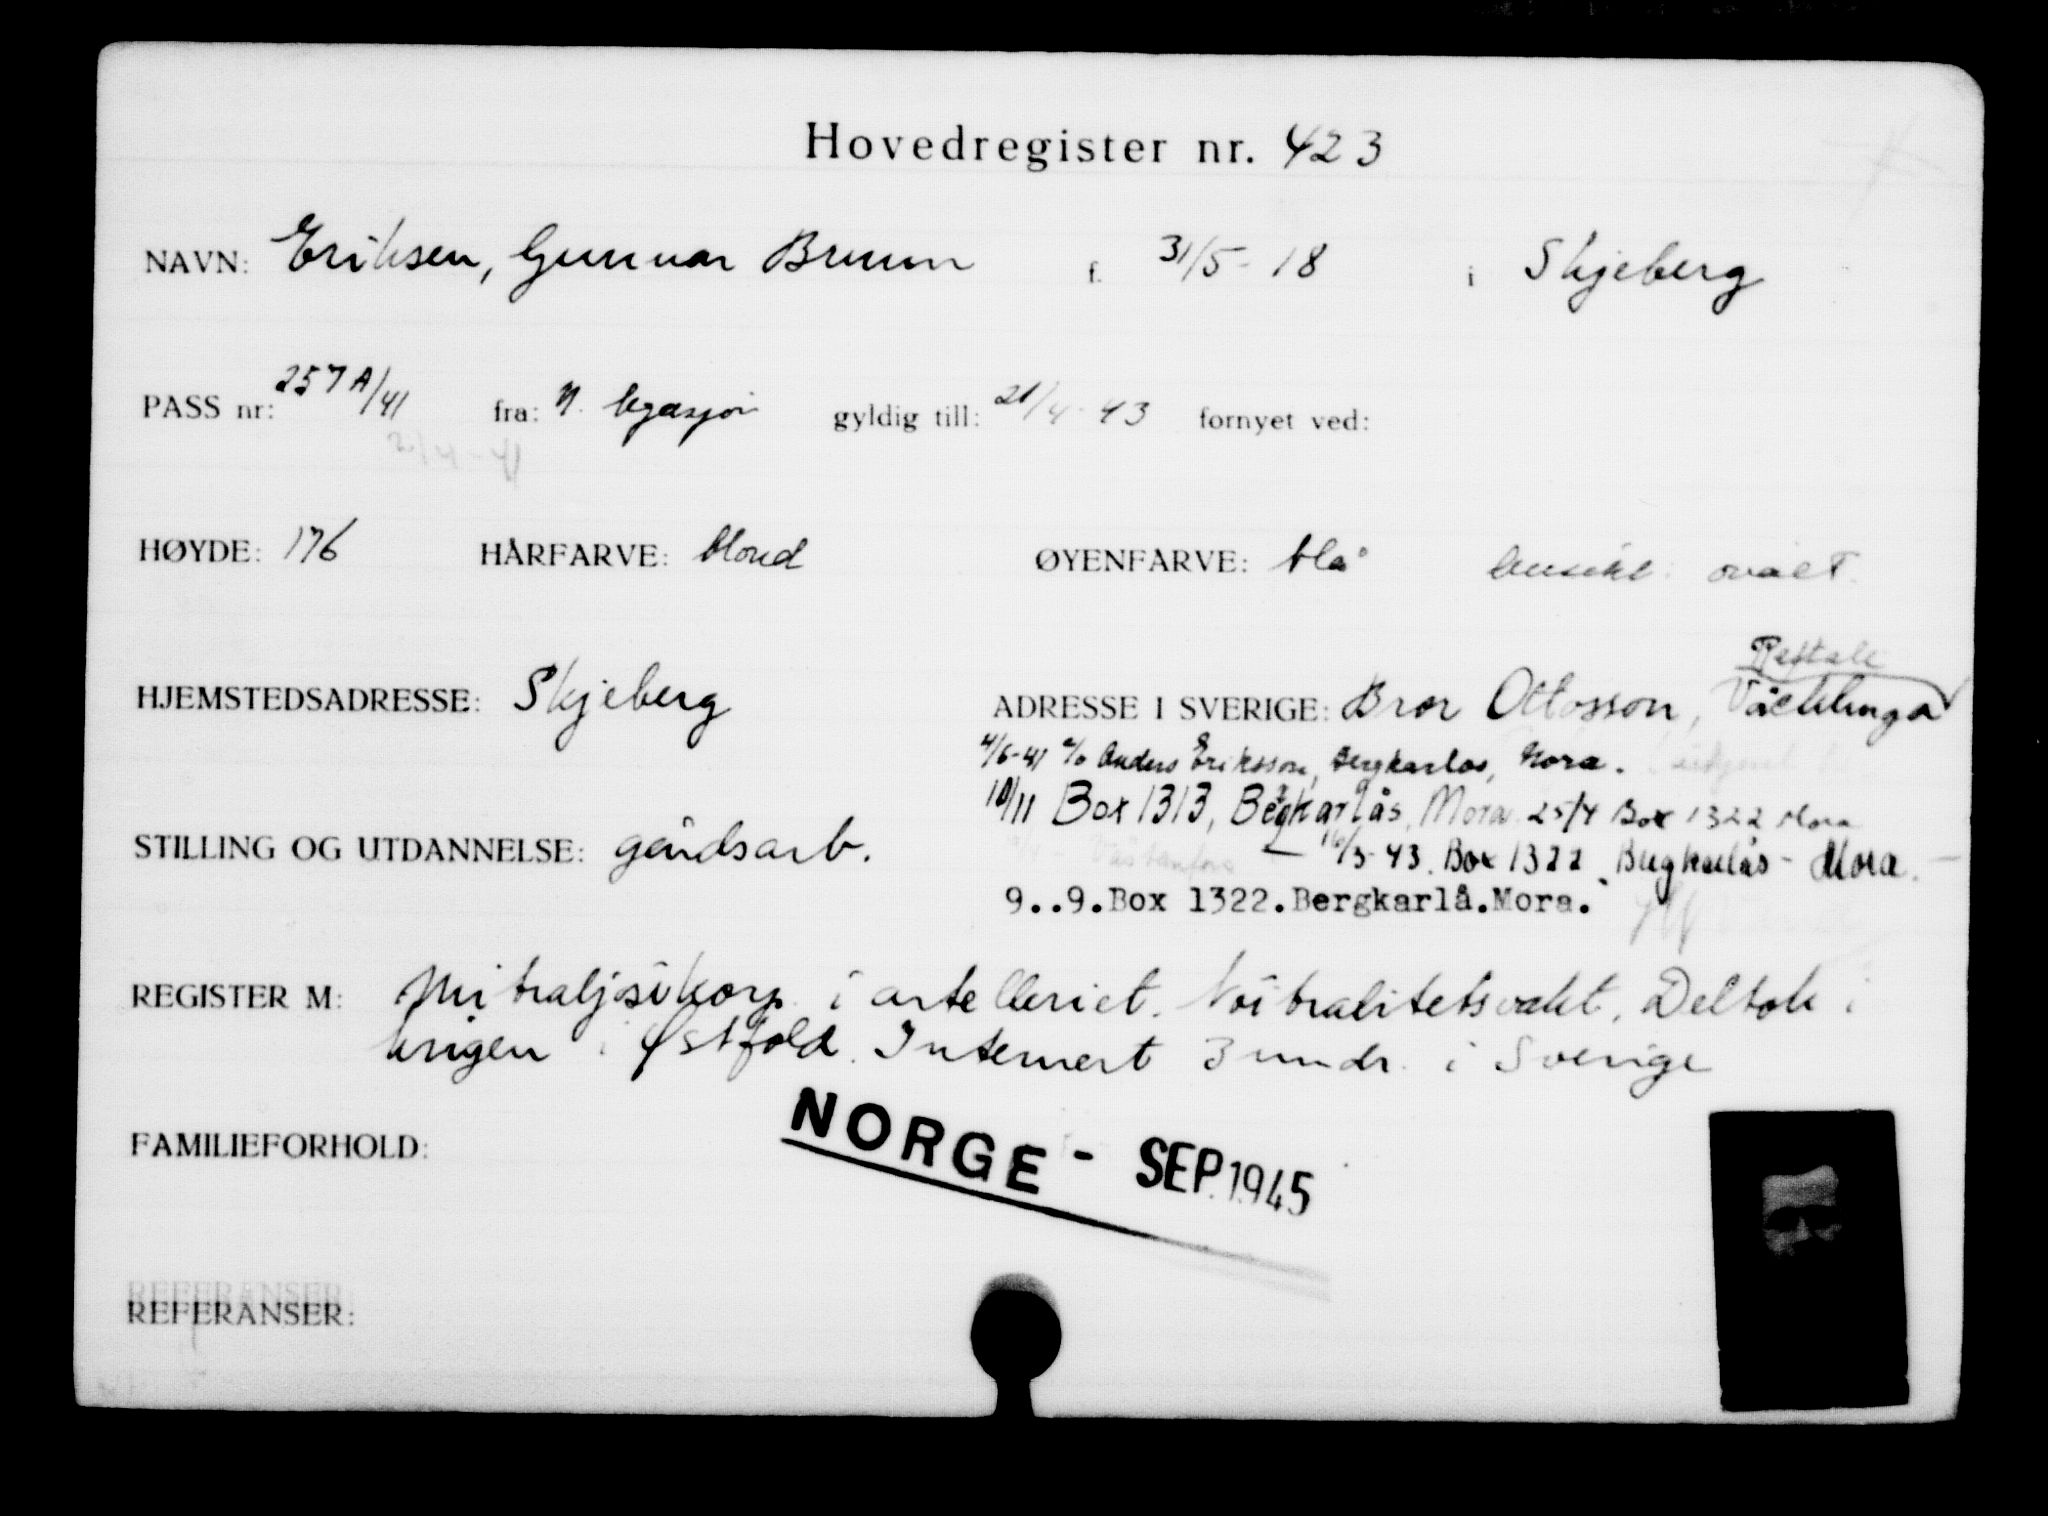 Hovedregister nr. 423
NAVN: Eriksen, Gunnar Bruun f. 31/5-18 i Skjeberg
PASS nr: 257A/41 fra: N. legasjon gyldig till: 21/4-43 fornyet ved:
21/4-41
HØYDE: 176 HÅRFARVE: blond ØYENFARVE: blå ansikt: ovalt.
HJEMSTEDSADRESSE: Skjeberg ADRESSE I SVERIGE: Bror Ottosson,
4/6-41 c/o Anders Eriksson, Bergkarlås, Mora.
10/11 Box 1313, Bergkarlås, Mora 25/4 Box 1322 Mora
STILLING OG UTDANNELSE: gårdsarb. 16/3-43. Box 1322 Bergkarlås - Mora.
9..9.Box 1322.Bergkarlå.Mora.
REGISTER M: Mitraljösikorp i artelleriet. Nöitralitetsvakt. Deltok i
krigen i Østfold. Internert 3 mndr. i Sverige
NORGE - SEP. 1945
FAMILIEFORHOLD:
REFERANSER: